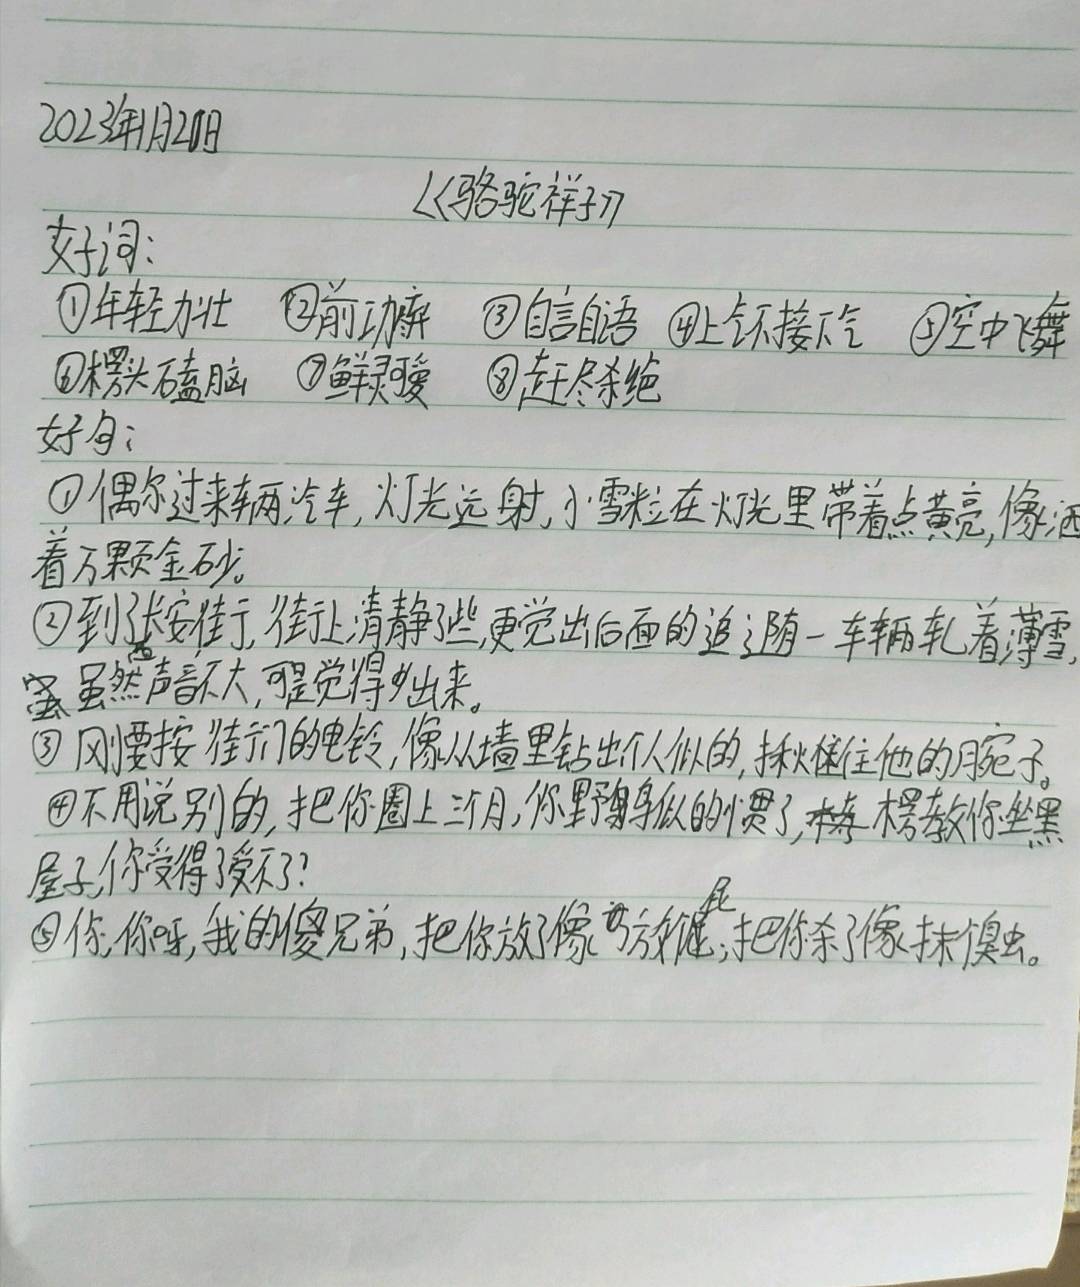 2023年1月20日
《骆驼祥子》
好词：
①年轻力壮 ②前功 ③自言自语 ④上气不接下气 ⑤空中飞舞
⑥楞头磕脑 ⑦鲜灵可爱 ⑧赶尽杀绝
好句：
①偶尔过来辆汽车，灯光远射，小雪粒在灯光里带着点黄亮，像洒
着万颗金砂。
②到了长安街，街上清静了些，更觉出后面的追随一车辆轧着薄雪，
虽然声音不大，可是觉得出来。
③刚要按街门的电铃，像从墙里钻出个人似的，揪住他的腕子。
④不用说别的，把你圈上三个月，你野鸟似的惯了，楞教你坐黑
屋子，你受得了受不了？
⑤你，你呀，我的傻兄弟，把你放了像放屁，把你杀了像抹臭虫。